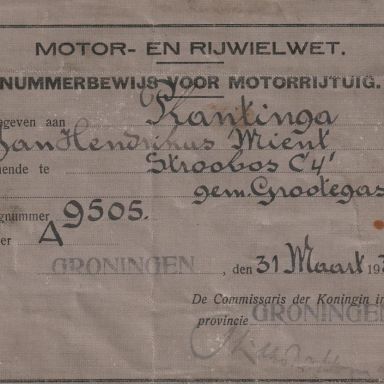 MOTOR- EN RIJWIELWET.
NUMMERBEWIJS VOOR MOTORRIJTUIG.
egeven aan Kantinga
Jan Hendrikus Mient
nende te Stroobos C 4
gem. Grootegas
gnummer 9505.
er A
GRONINGEN , den 31 Maart 193
De Commissaris der Koningin in
provincie GRONINGEN